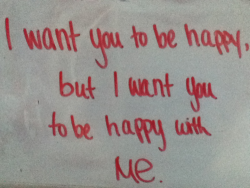 I want you to be happy,
but I want you
to be happy with
Me.